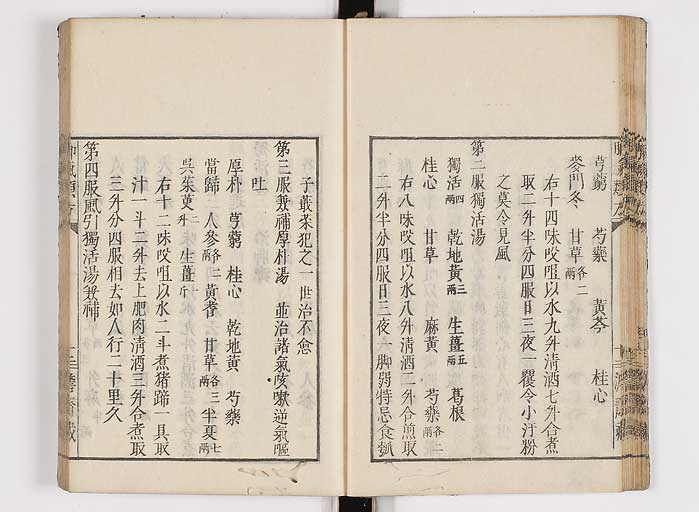 芎藭　芍藥　黄芩　桂心
麥門冬　甘草各二兩
右十四味㕮咀以水九升清酒七升合煮
取二升半分四服日三夜一覆令小汗粉
之莫令見風
第二服獨活湯
獨活四兩　乾地黄三兩　生薑五兩　葛根
桂心　甘草　麻黄　芍藥各二兩
右八味㕮咀以水八升清酒二升合煎取
二升半分四服日三夜一脚弱特忌食瓠
子蕺菜犯之一世治不愈
第三服兼補厚朴湯　並治諸氣咳嗽逆氣嘔
吐
厚朴　芎藭　桂心　乾地黄　芍藥
當歸　人參各二兩　黄耆　甘草各三兩　半夏七兩
呉茱萸二升　生薑一斤
右十二味㕮咀以水二斗煮猪蹄一具取
汁一斗二升去上肥肉清酒三升合煮取
三升分四服相去如人行二十里久
第四服風引獨活湯兼補